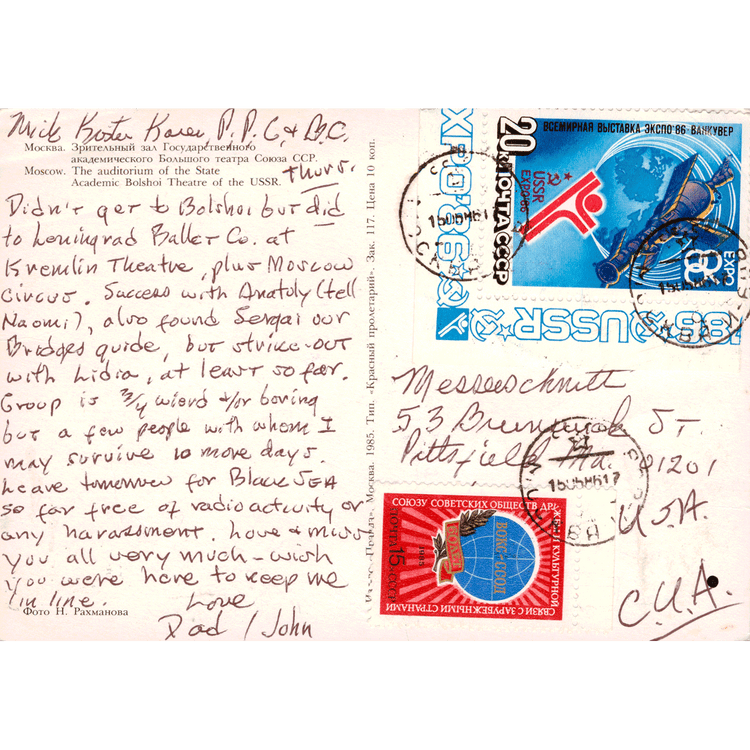 Mick Buster Karen, P.P.C. & B.C.
Москва. Зрительный зал Государственного
академического Большого театра Союза ССР.
Moscow. The auditorium of the State
Academic Bolshoi Theatre of the USSR.
Thurs.
Didn't get to Bolshoi but did
to Leningrad Ballet Co. at
Kremlin Theatre, plus Moscow
Circus. Success with Anatoly (tell
Naomi), also found Sergai our
Bridges guide, but strike-out
with Lidia, at least so far.
Group is 3/4 wierd &/or boring
but a few people with whom I
may survive 10 more days.
Leave tomorrow for Black Sea
so far free of radioactivity or
any harassment. Love & miss
you all very much - wish
you were here to keep me
in line.
Love
Dad / John
Фото Н. Рахманова
Москва. 1985. Тип. «Красный пролетарий». Зак. 117. Цена 10 коп.
EXPO'86
20к ПОЧТА СССР
ВСЕМИРНАЯ ВЫСТАВКА ЭКСПО'86·ВАНКУВЕР
USSR
EXPO'86
EXPO
86
'86 USSR
15058617
15058617
Messerschmitt
53 Brunswick St.
Pittsfield Ma. 01201
15058617
U.S.A.
США.
СОЮЗУ СОВЕТСКИХ ОБЩЕСТВ ДРУЖБЫ И КУЛЬТУРНОЙ
СВЯЗИ С ЗАРУБЕЖНЫМИ СТРАНАМИ
ПОЧТА 15к СССР
60 ЛЕТ
ВОКС-ССОД
1985